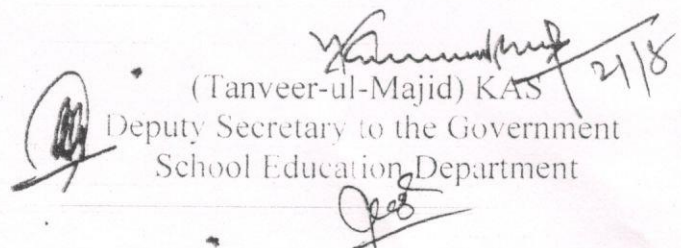 (Tanveer-ul-Majid) KAS 21/8
Deputy Secretary to the Government
School Education Department